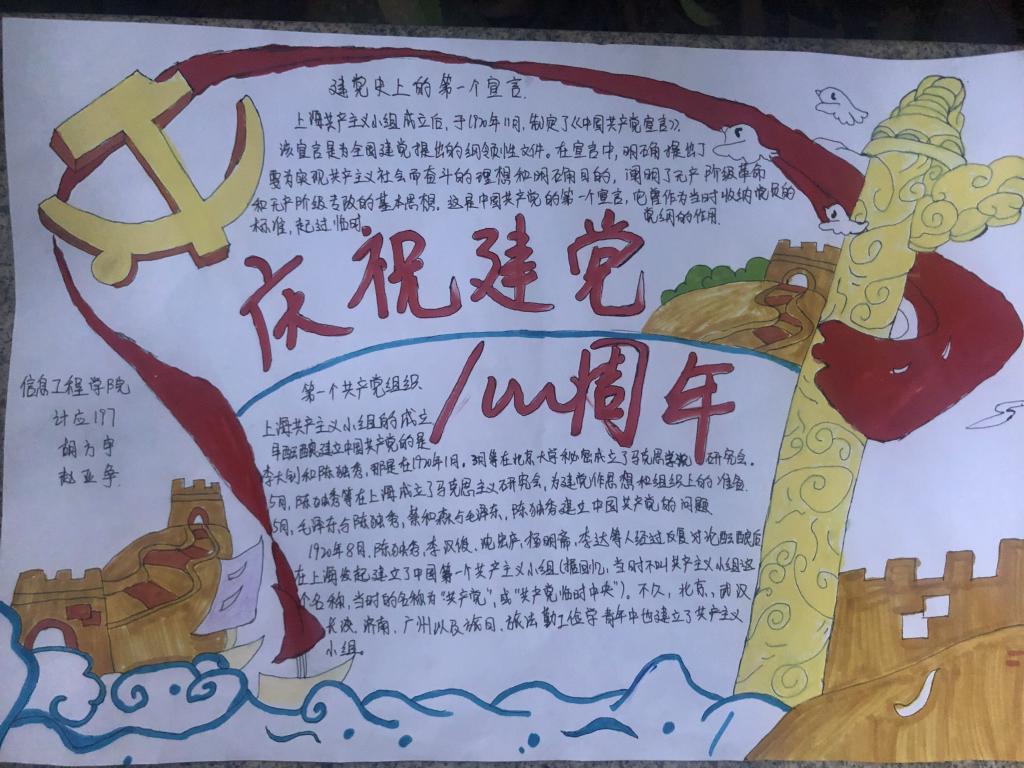 建党史上的第一个宣言.
上海共产主义小组成立后，于1920年11月，制定了《中国共产党宣言》。
该宣言是为全国建党提出的纲领性文件。在宣言中，明确提出了
要为实现共产主义社会而奋斗的理想和明确目的，阐明了无产阶级革命
和无产阶级专政的基本思想。这是中国共产党的第一个宣言，它曾作为当时收纳党员的
标准，起过临时 党纲的作用.
庆祝建党
100周年
信息工程学院
计应197
胡方宇
赵亚争
第一个共产党组织.
上海共产主义小组的成立
年酝酿建立中国共产党的是
李大钊和陈独秀，那是在1920年1月。3月等在北京大学秘密成立了马克思学说研究会。
5月，陈独秀等在上海成立了马克思主义研究会，为建党作思想和组织上的准备.
5月，毛泽东与陈独秀，蔡和森与毛泽东，陈独秀建立中国共产党的问题
1920年8月，陈独秀，李汉俊，沈玄庐，杨明斋，李达等人经过反复讨论酝酿后
在上海发起建立了中国第一个共产主义小组（据回忆，当时不叫共产主义小组这
个名称，当时的名称为“共产党”，或“共产党临时中央”）。不久，北京、武汉
长沙，济南，广州以及旅日、旅法勤工俭学青年中也建立了共产主义
小组。